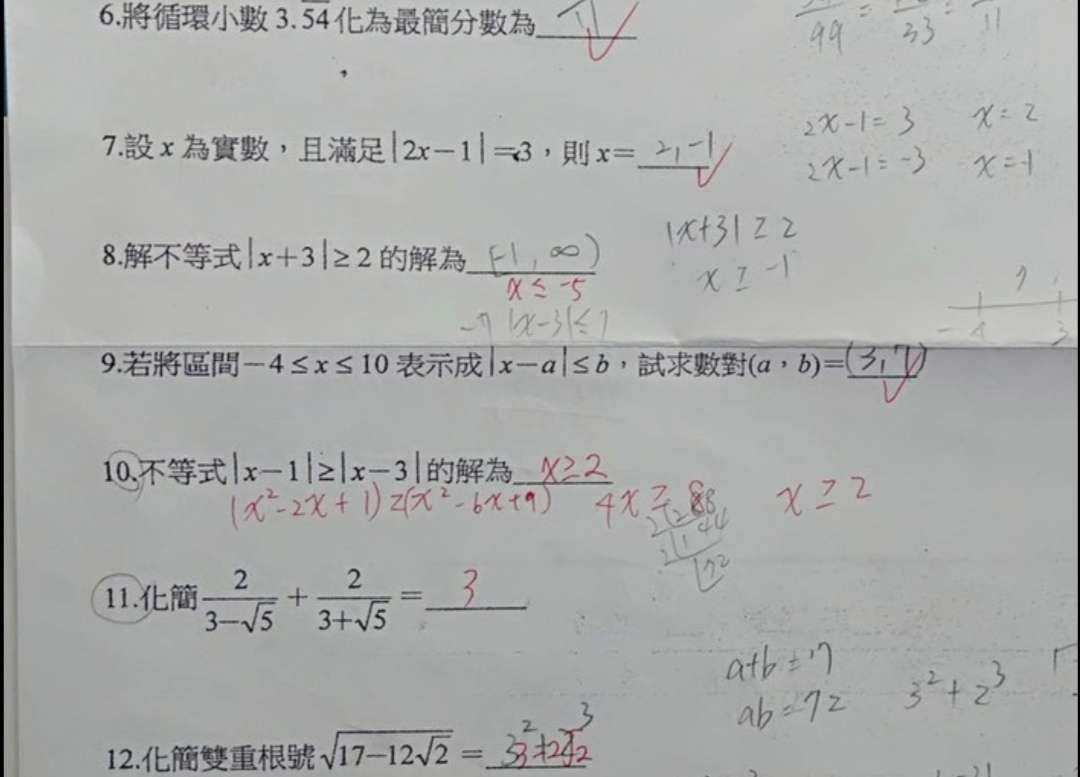 6.將循環小數 3.54 化為最簡分數為
99 = 33 = 11
7.設 x 為實數，且滿足|2x－1|=3，則 x= 2, -1
2x-1=3 x=2
2x-1=-3 x=-1
8.解不等式|x+3|≥2 的解為 [-1, ∞)
x≤-5
|x+3|≥2
x≥-1
-7 |x-3|≤7
9.若將區間－4≤x≤10 表示成|x－a|≤b，試求數對(a，b)=(3, 7)
10.不等式|x－1|≥|x－3|的解為 x≥2
(x²-2x+1)≥(x²-6x+9) 4x≥8 x≥2
11.化簡 2/(3－√5) + 2/(3+√5) = 3
a+b=17
ab=72 3²+2³
12.化簡雙重根號√(17－12√2) =